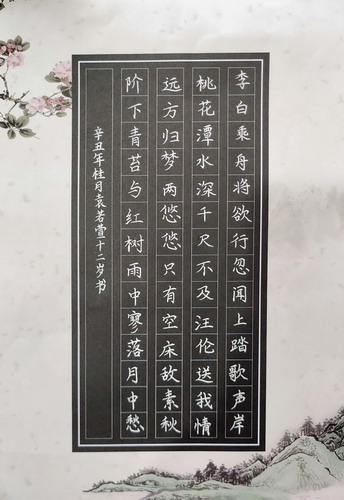 李白乘舟将欲行忽闻上踏歌声岸
桃花潭水深千尺不及汪伦送我情
远方归梦两悠悠只有空床敌素秋
阶下青苔与红树雨中寥落月中愁
辛丑年桂月袁若萱十二岁书